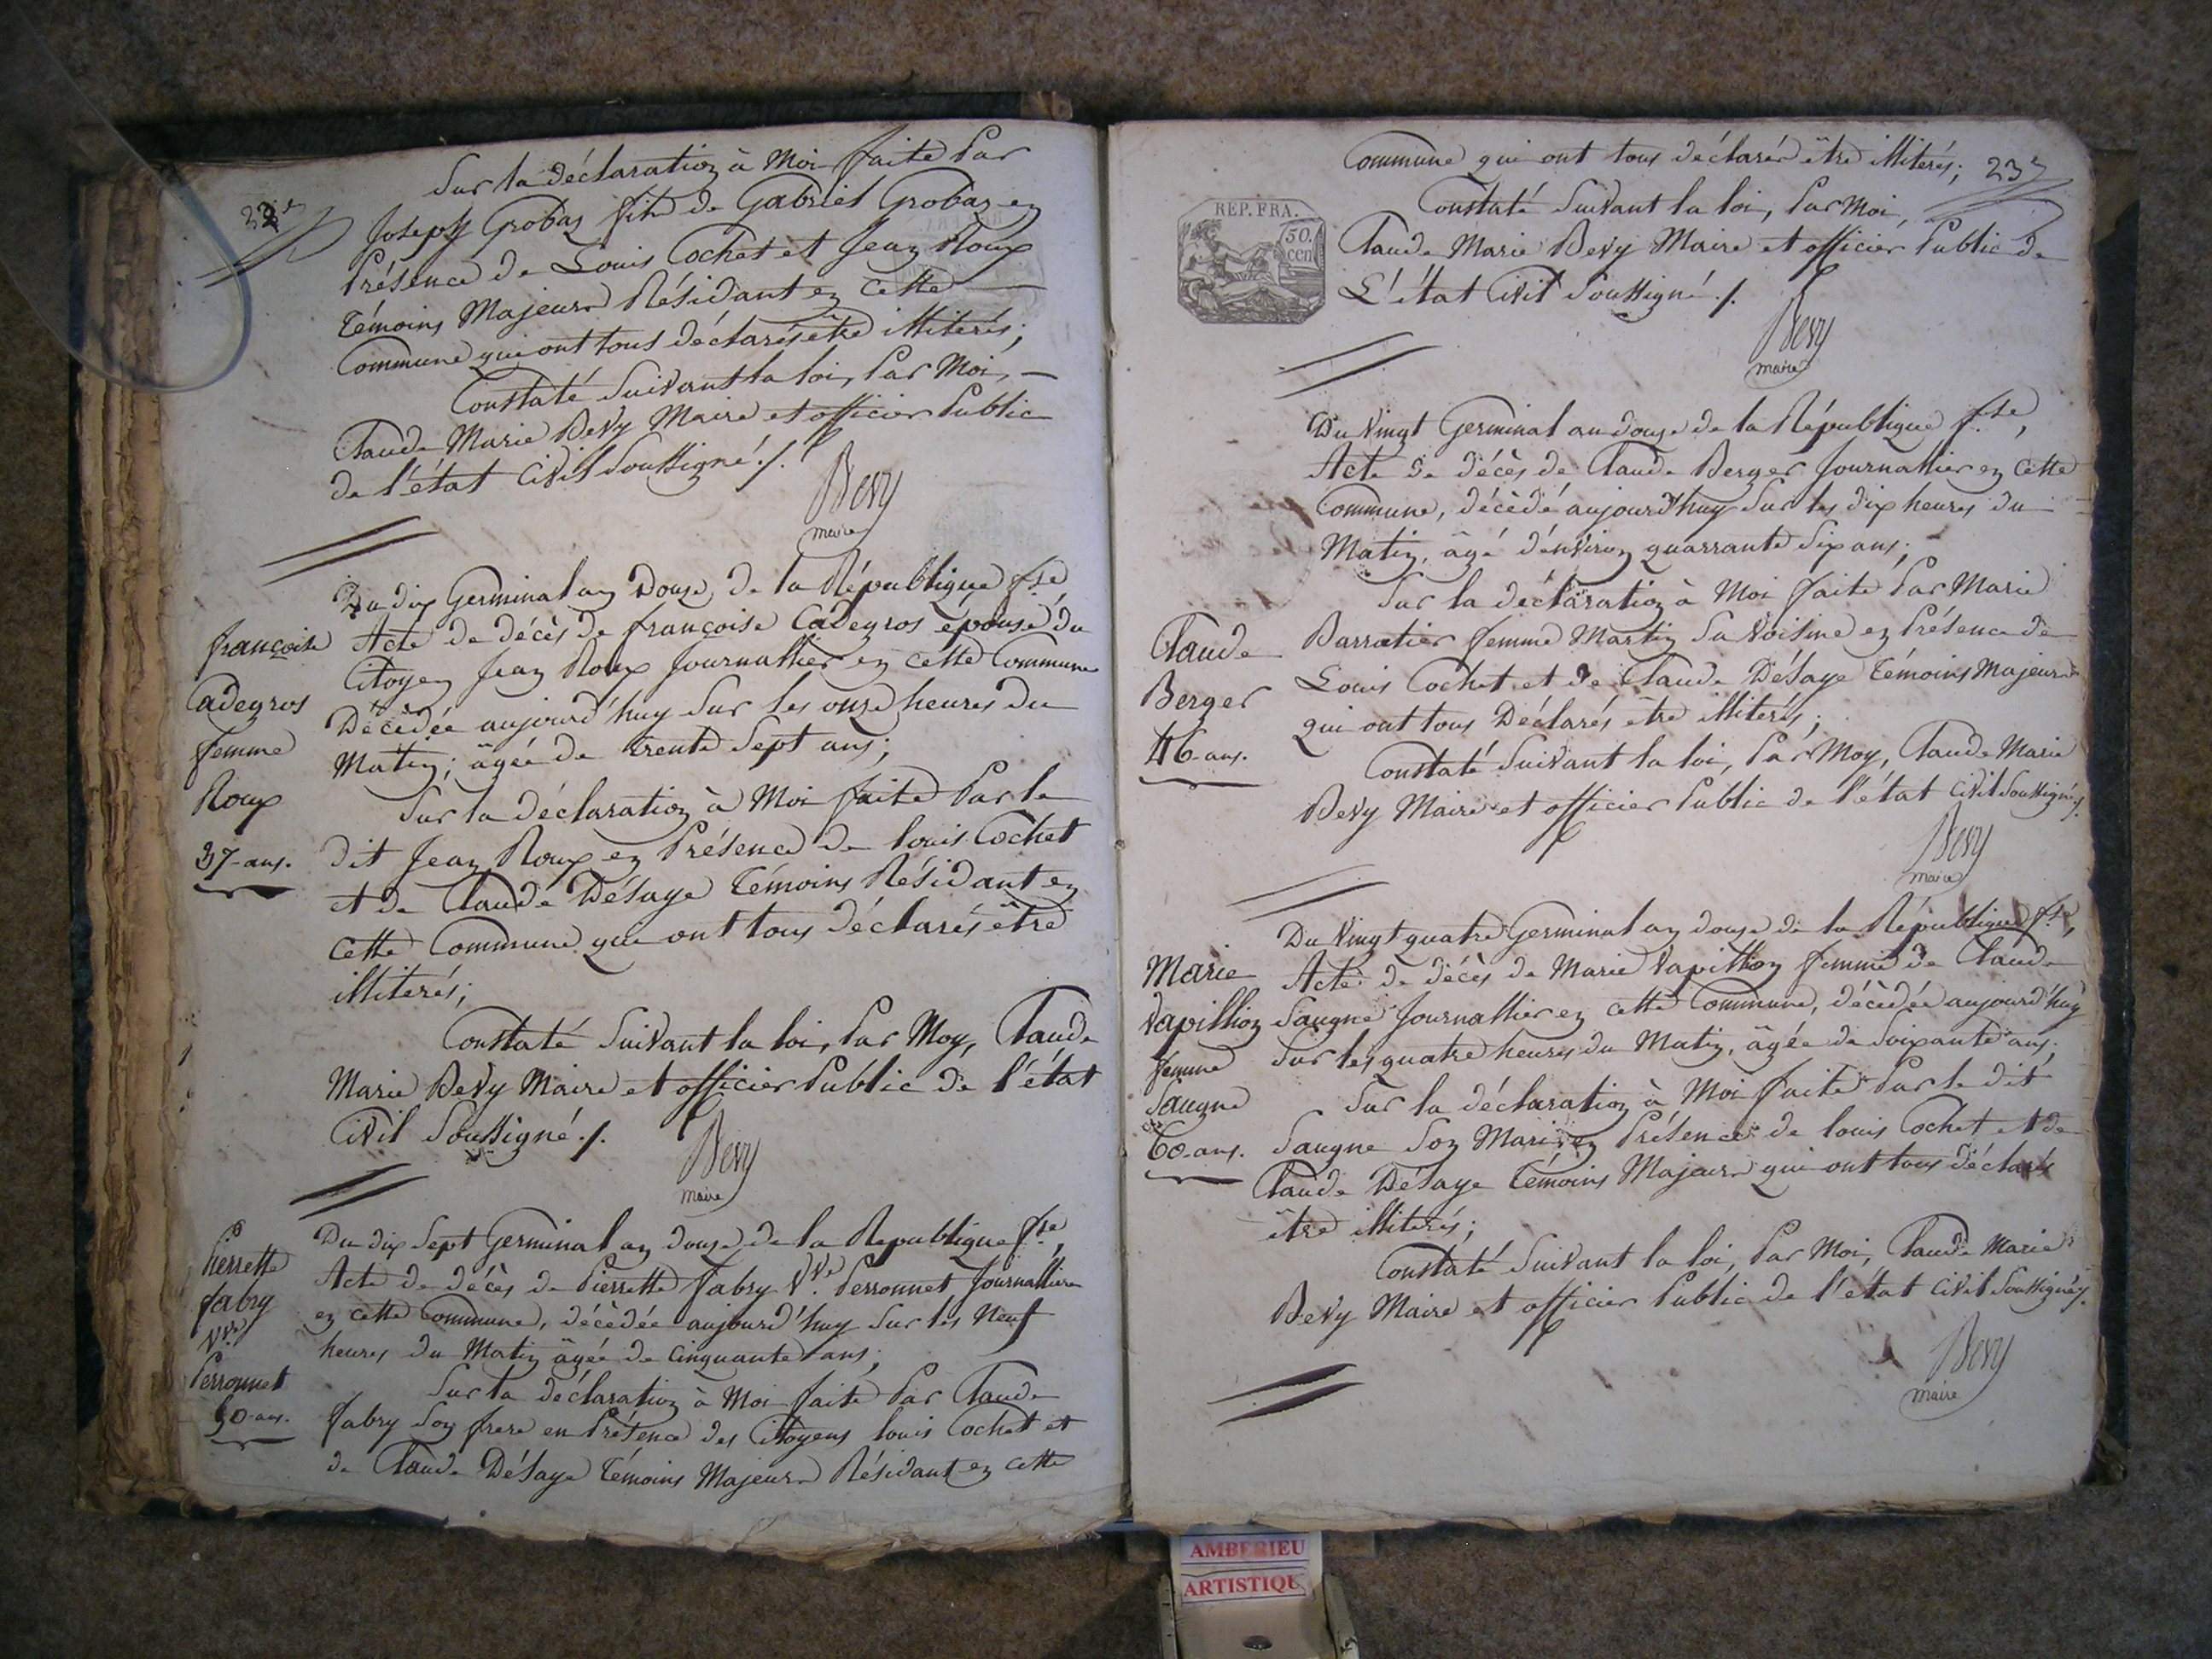 22e
Sur la déclaration à Moi faite Par
Joseph Grobas fils de Gabriel Grobas en
Présence de Louis Cochet et Jean Roux
Témoins Majeurs Résidant en cette
Commune qui ont tous déclarés être illiterés;
Constaté Suivant la loi, Par Moi,
Claude Marie Bevy Maire et officier Public
de l'état Civil Soussigné ./.
Bevy
maire
françoise
Cadegros
femme
Roux
37 ans.
Du dix Germinal an Douze de la République fse,
Acte de décès de françoise Cadegros épouse du
Citoyen Jean Roux Journallier en cette Commune
Décèdée aujourd'huy Sur les onze heures du
Matin; âgée de trente Sept ans;
Sur la déclaration à Moi faite Par le
dit Jean Roux en Présence de louis Cochet
et de Claude Désaye Témoins Résidant en
cette Commune qui ont tous déclarés être
illiterés;
Constaté Suivant la loi, Par Moy, Claude
Marie Bevy Maire et officier Public de l'état
Civil Soussigné ./.
Bevy
maire
Pierrette
fabry
Vve
Perronnet
50 ans.
Du dix Sept Germinal an douze de la Republique fse,
Acte de décès de Pierrette fabry Vve. Perronnet Journalliere
en cette Commune, décèdée aujourd'huy Sur les Neuf
heures du Matin âgée de Cinquante ans;
Sur la déclaration à Moi faite Par Claude
fabry Son frere en Présence des Citoyens louis Cochet et
de Claude Désaye Témoins Majeurs Résidant en cette
23e
Commune qui ont tous déclarés être illiterés;
REP. FRA.
50.
cen
Constaté Suivant la loi, Par Moi,
Claude Marie Bevy Maire et officier Public de
L'état Civil Soussigné ./.
Bevy
maire
Claude
Berger
46 ans.
Du Vingt Germinal an douze de la République fse,
Acte de décès de Claude Berger Journallier en cette
Commune, décèdé aujourd'huy Sur les dix heures du
Matin, âgé d'environ quarrante Six ans;
Sur la déclaration à Moi faite Par Marie
Barratier femme Martin Sa Voisine en Présence de
Louis Cochet et de Claude Désaye Témoins Majeurs
qui ont tous Déclarés être illiterés;
Constaté Suivant la loi, Par Moy, Claude Marie
Bevy Maire et officier Public de l'état Civil Soussigné ./.
Bevy
maire
Marie
Vapillion
femme
Saugne
60 ans.
Du Vingt quatre Germinal an douze de la République fse,
Acte de décès de Marie Vapillion femme de Claude
Saugne Journallier en cette Commune, décèdée aujourd'huy
Sur les quatre heures du Matin, âgée de Soixante ans;
Sur la déclaration à Moi faite Par le dit
Saugne Son Mari en Présence de louis Cochet et de
Claude Désaye Témoins Majeurs qui ont tous déclarés
être illiterés;
Constaté Suivant la loi, Par Moi, Claude Marie
Bevy Maire et officier Public de l'état Civil Soussigné ./.
Bevy
maire
AMBERIEU
ARTISTIQU